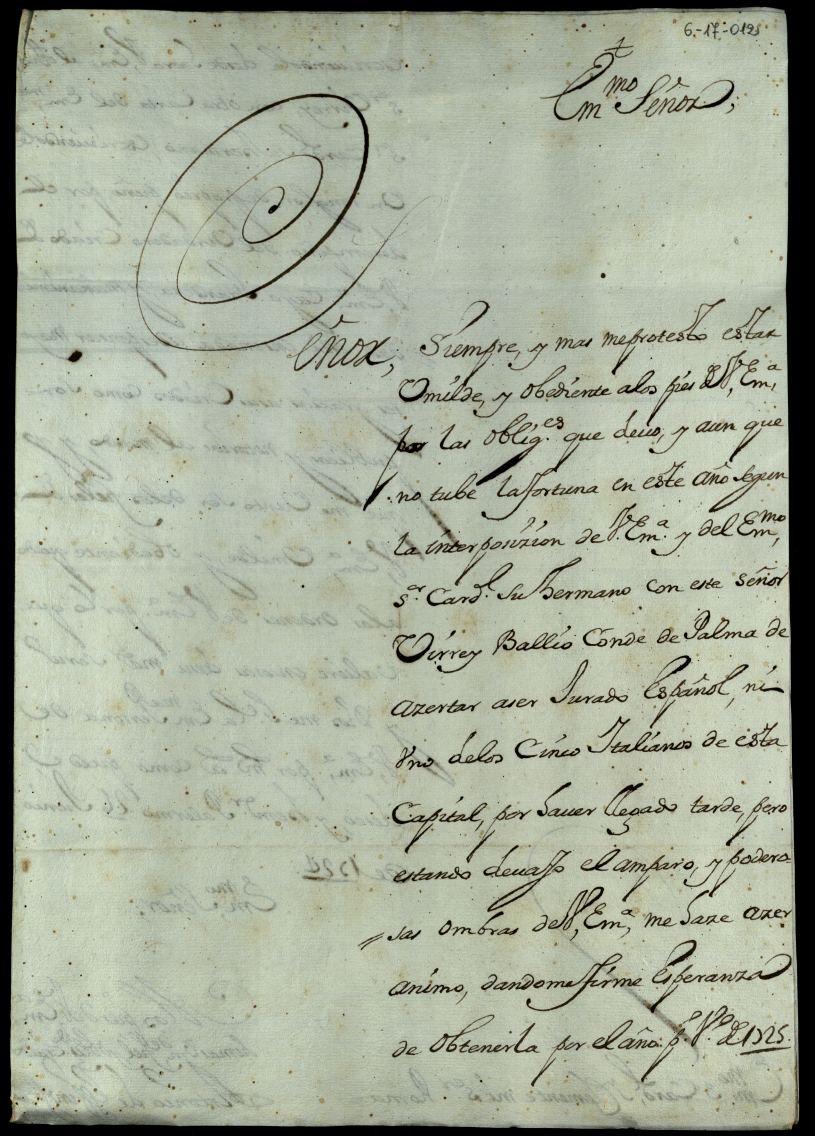 6-17-0121
Em^mo Señor,
Señor, Siempre, y mas me protesto estar
Vmilde, y obediente a los pies de V, Em^a,
por las oblig.^es que deuo, y aun que
no tube la fortuna en este año segun
la interposizion de V. Em^a. y del Em^mo,
S.^r Card.^l su hermano con este señor
Virrey Ballio Conde de Palma de
azertar aser Jurado Español, ni
Vno delos Cinco Italianos de esta
Capital, por hauer llegado tarde, pero
estando deuajo el amparo, y podero=
sas ombras de V, Em^a, me haze azer
animo, dandome firme Esperanza
de obtenerla por el año p.^o V.^o de 1725.
Em^mo S^r Card.^l Cienfuegos mi S^or Roma